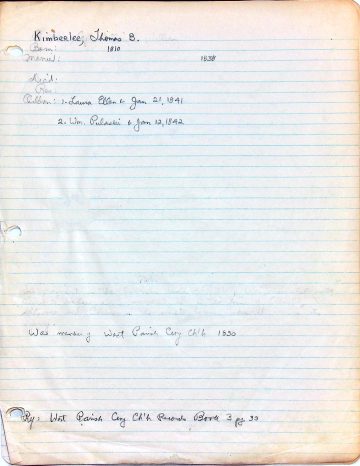 Kimberlee, Thomas B.
Born: 1810
Married: 1838
Died:
Res:
Children: 1. Laura Ellen b. Jan 21, 1841
2. Wm. Pulaski b Jan 12, 1842
Was member of West Parish Cong Ch'h 1830
Ref: West Parish Cong Ch'h Records Book 3 pg 30